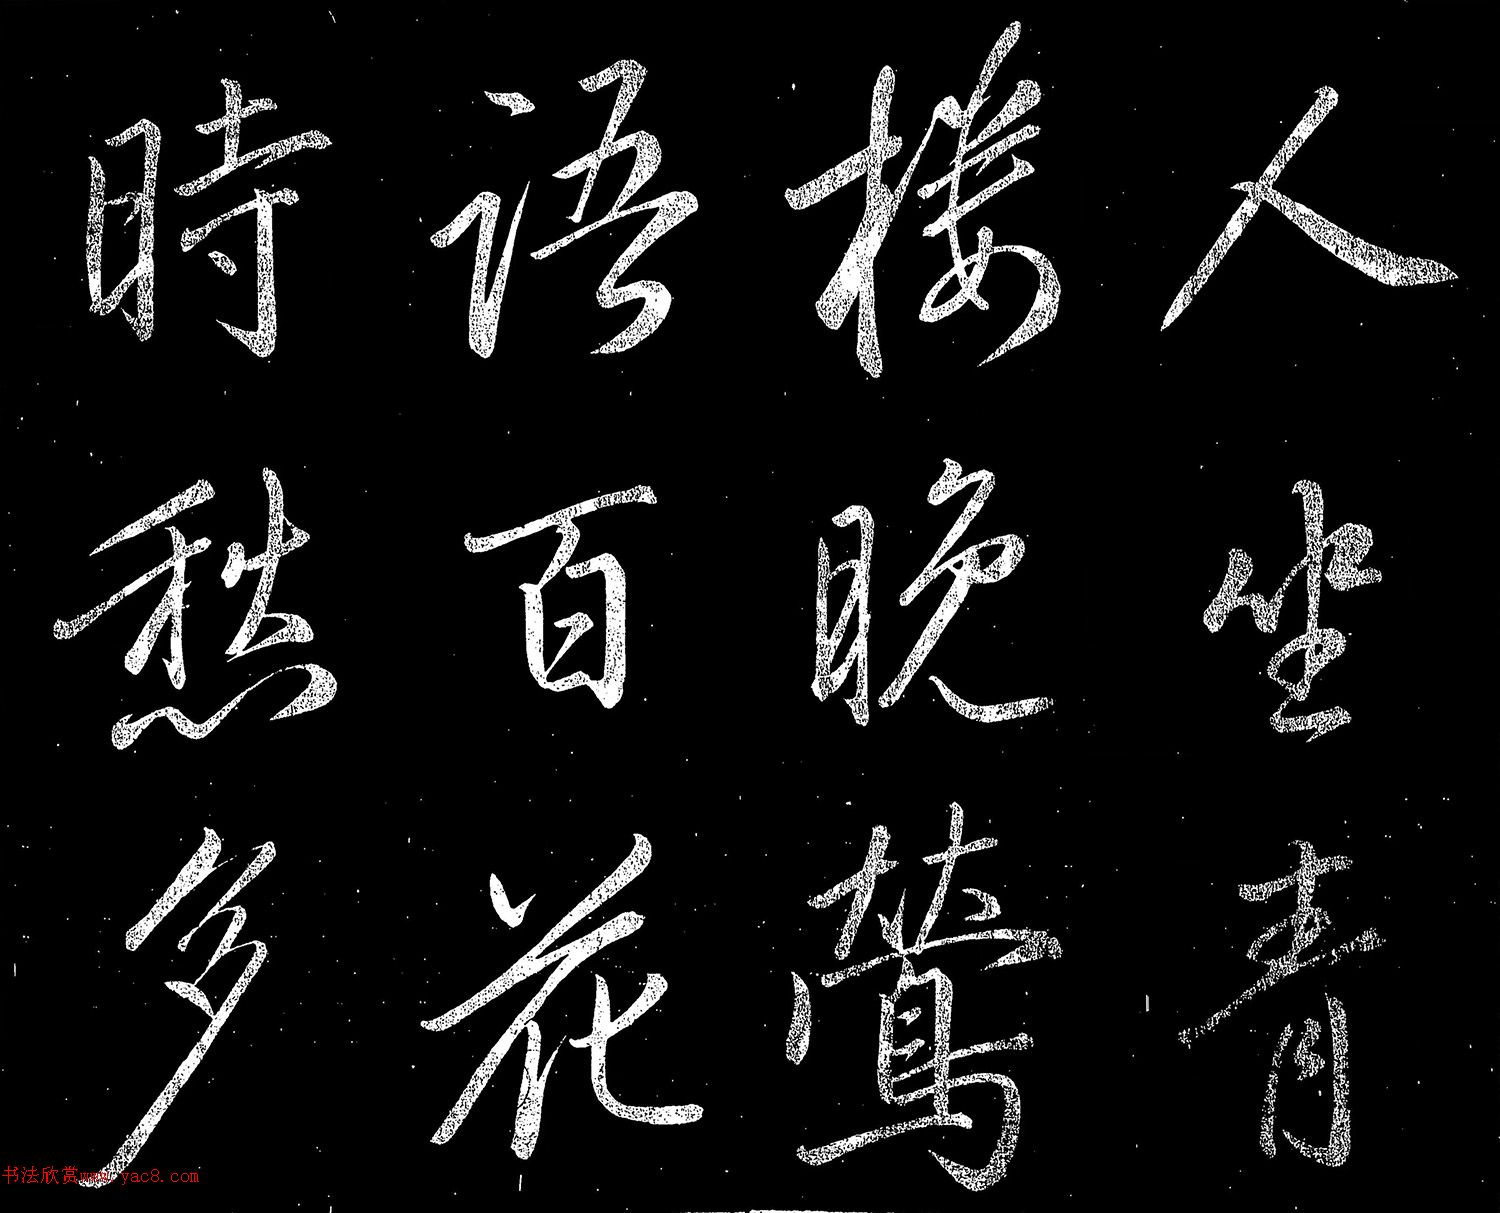 人坐青
樓晚鶯
語百花
時愁多
书法欣赏www.yac8.com